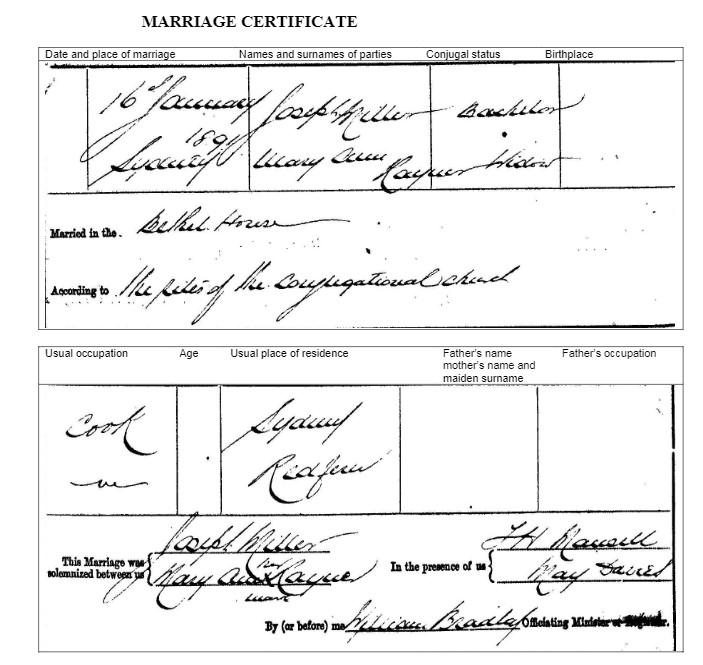 MARRIAGE CERTIFICATE
Date and place of marriage Names and surnames of parties Conjugal status Birthplace
16 January Joseph Miller Bachelor
189
Sydney Mary Ann Rayner Widow
Married in the Bethel House
According to the rites of the Congregational Church
Usual occupation Age Usual place of residence Father's name Father's occupation
mother's name and
maiden surname
Cook Sydney
Redfern
Joseph Miller
This Marriage was
solemnized between us
Mary Ann Rayner
her
X
mark
In the presence of us
Mansell
May Davies
By (or before) me William Bradley Officiating Minister or Registrar.